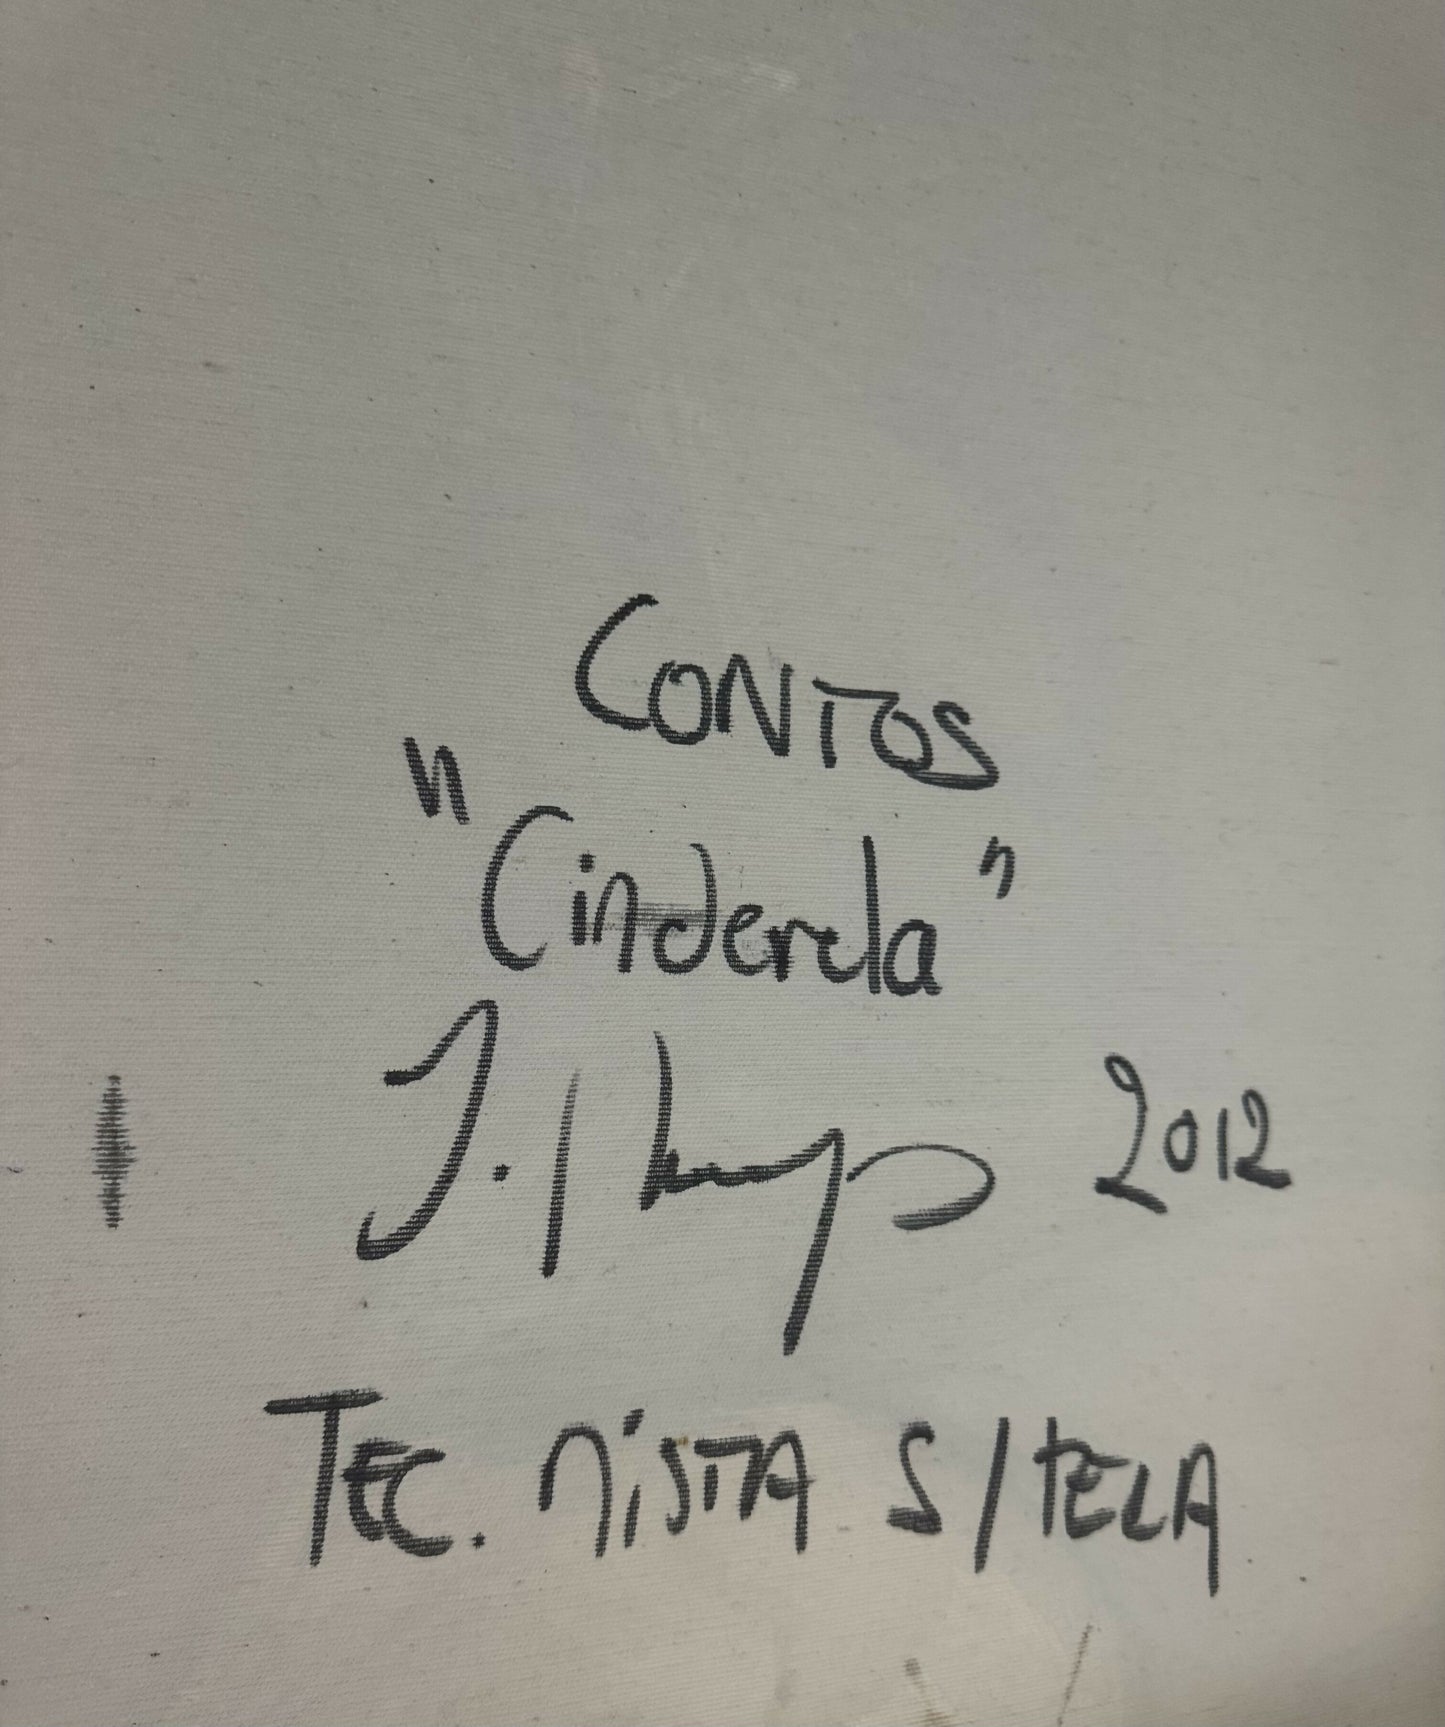 CONTOS
"Cinderela"
J. 2012
TEC. MISTA S/TELA